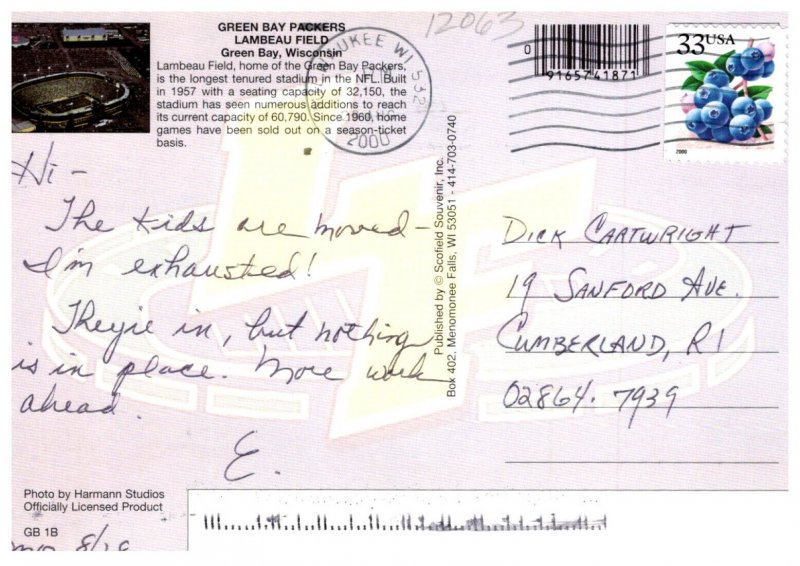 GREEN BAY PACKERS
LAMBEAU FIELD
Green Bay, Wisconsin
Lambeau Field, home of the Green Bay Packers,
is the longest tenured stadium in the NFL. Built
in 1957 with a seating capacity of 32,150, the
stadium has seen numerous additions to reach
its current capacity of 60,790. Since 1960, home
games have been sold out on a season-ticket
basis.
12063
UKEE WI 532
2000
0
9165741871
33USA
2000
Hi -
The kids are moved -
I'm exhausted!
They're in, but nothing
is in place. More work
ahead.
E.
Published by © Scofield Souvenir, Inc.
Box 402, Menomonee Falls, WI 53051 - 414-703-0740
DICK CARTWRIGHT
19 SANFORD AVE.
CUMBERLAND, RI
02864-7939
Photo by Harmann Studios
Officially Licensed Product
GB 1B